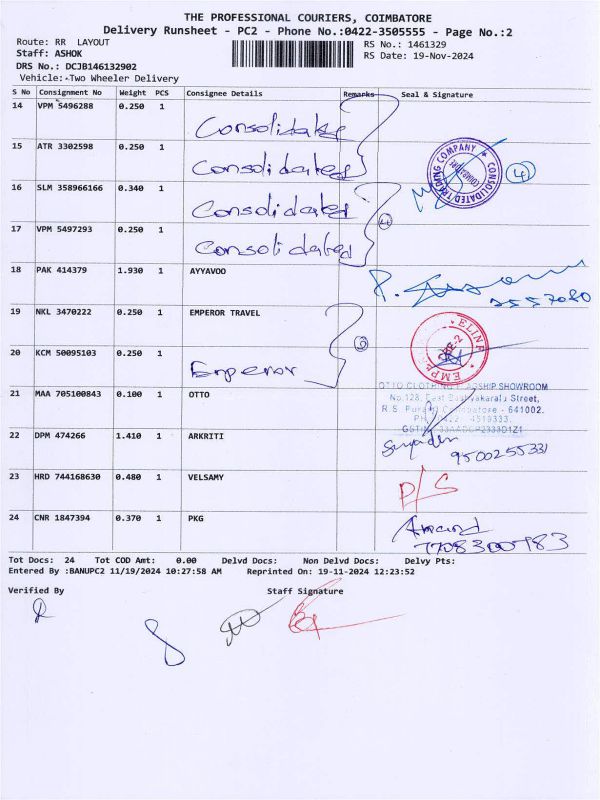 THE PROFESSIONAL COURIERS, COIMBATORE
Delivery Runsheet - PC2 - Phone No.:0422-3505555 - Page No.:2
Route: RR LAYOUT
RS No.: 1461329
Staff: ASHOK
RS Date: 19-Nov-2024
DRS No.: DCJB146132902
Vehicle:-Two Wheeler Delivery
S No Consignment No Weight PCS Consignee Details Remarks Seal & Signature
14 VPM 5496288 0.250 1 Consolidated
15 ATR 3302598 0.250 1 Consolidated
CONSOLIDATED TRADING COMPANY
4
16 SLM 358966166 0.340 1 Consolidated
17 VPM 5497293 0.250 1 Consolidated
4
18 PAK 414379 1.930 1 AYYAVOO
19 NKL 3470222 0.250 1 EMPEROR TRAVEL
20 KCM 50095103 0.250 1 Emperor
CBE-2
21 MAA 705100843 0.100 1 OTTO
OTTO CLOTHING FLAGSHIP SHOWROOM
No.128, East
R.S. Coimbatore - 641002.
22 DPM 474266 1.410 1 ARKRITI
9500255331
23 HRD 744168630 0.480 1 VELSAMY
D/S
24 CNR 1847394 0.370 1 PKG
Anand
7708300783
Tot Docs: 24 Tot COD Amt: 0.00 Delvd Docs: Non Delvd Docs: Delvy Pts:
Entered By :BANUPC2 11/19/2024 10:27:58 AM Reprinted On: 19-11-2024 12:23:52
Verified By Staff Signature